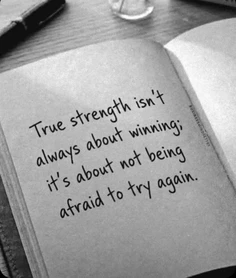 True strength isn't
always about winning;
it's about not being
afraid to try again.